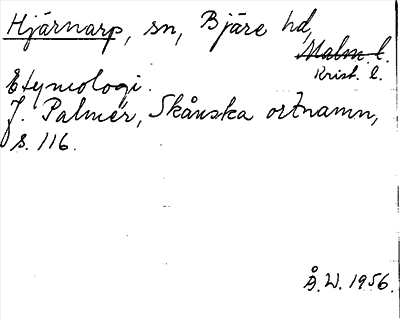 Hjärnarp, sn, Bjäre hd,
Malm. l.
Krist. l.
Etymologi.
J. Palmér, Skånska ortnamn,
s. 116.
Å.W. 1956.